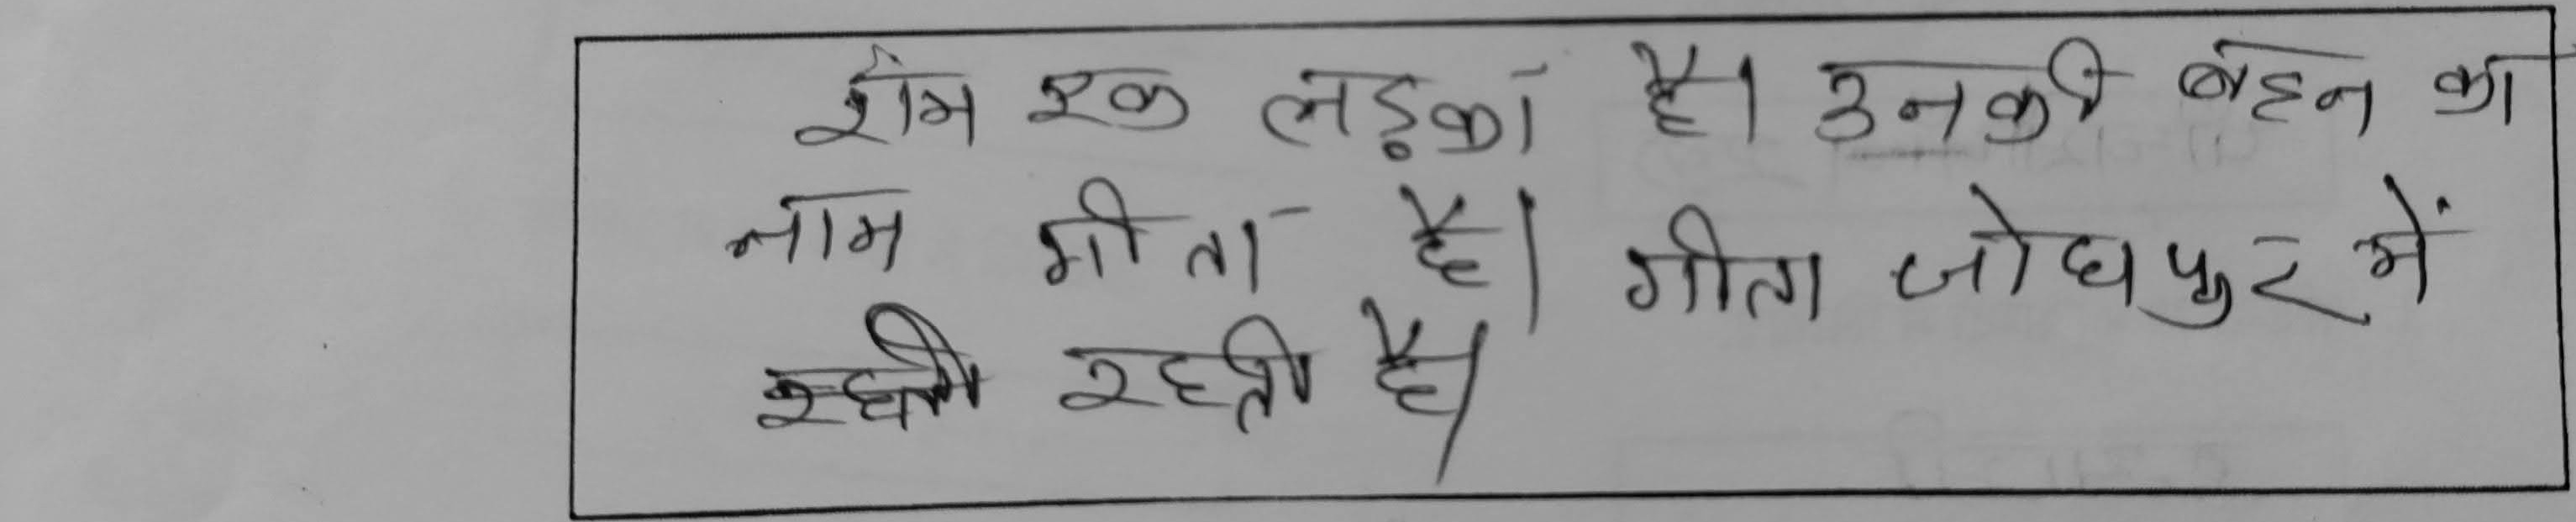 राम एक लड़का है। उनकी बहन का
नाम गीता है। गीता जोधपुर में
रहती है।